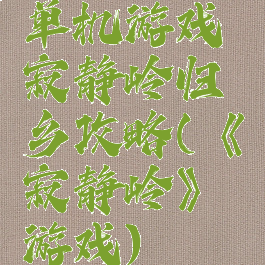 单机游戏
寂静岭归
乡攻略(《
寂静岭》
游戏)